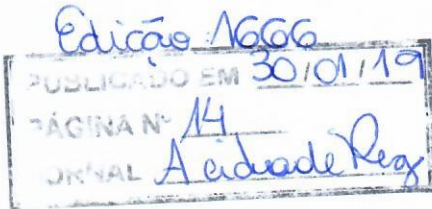 Edição 1666
PUBLICADO EM 30/01/19
PÁGINA Nº 14
JORNAL A cidade Reg